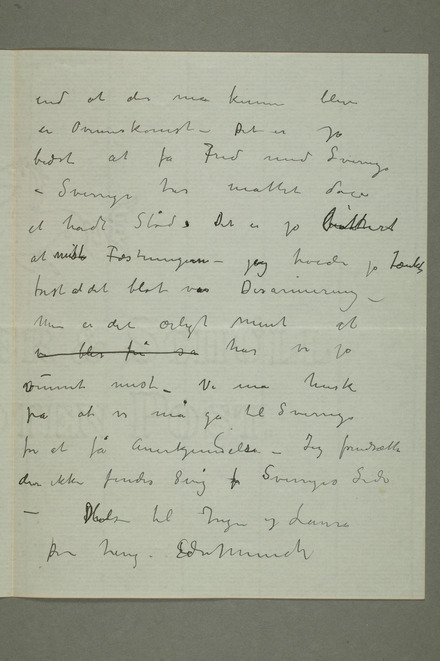 end at der må kunne blive
en Overenskomst – Det er jo
bedst at få Fred med Sverige
– Sverige har måttet døie
et hårdt Stød. Det er jo
at miste Fæstningerne – jeg havde jo tænkt
det blot var Desarmering –
Men er det ærligt ment at
så har vi jo
vundet mest – Vi må huske
på at vi må gå til Sverige
for at få Anerkjendelse – Jeg forudsætter
der ikke findes Svig fra Sveriges Side
– Hilsen til Inger og Laura
Din heng. Edv Munch